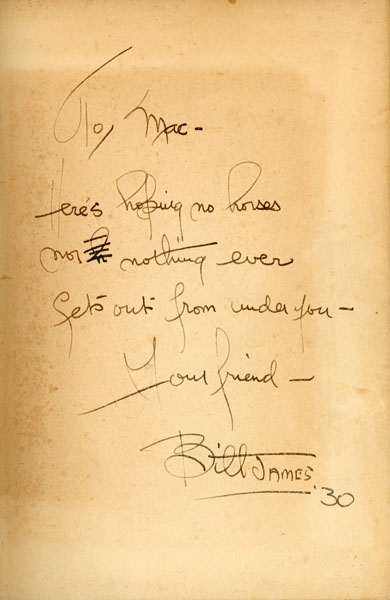 To, Mac-
Heres hoping no horses
nor nothing ever
Gets out from under you-
Your friend-
Bill JAMES
'30